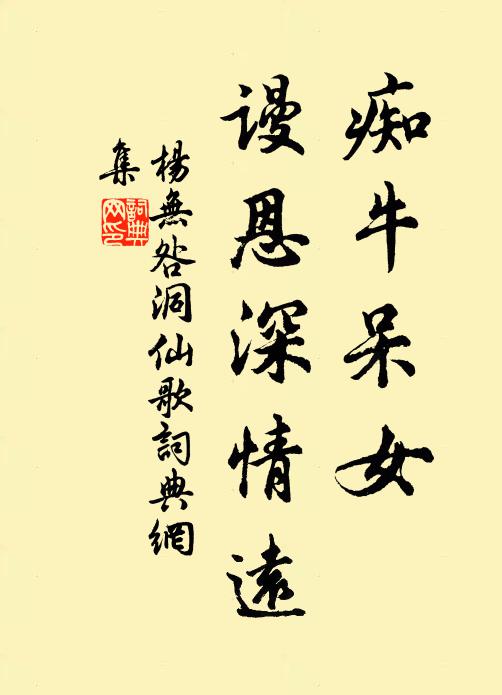 痴牛呆女
谩恩深情遠
楊無咎洞仙歌詞典網
集
詞典
网印